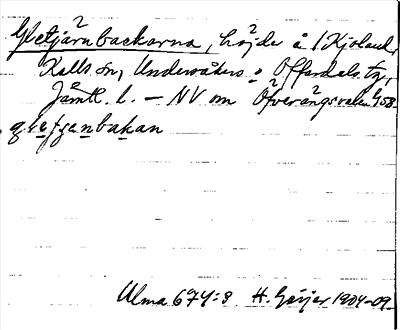 Gletjärnbackarna, höjder å / Kjoland,
Kalls sn, Undersåkers o Offerdals tg,
Jämtl. l. – NV om Öfverängsvalen 458
Ulma 674:3 H. Geijer 1904-09.